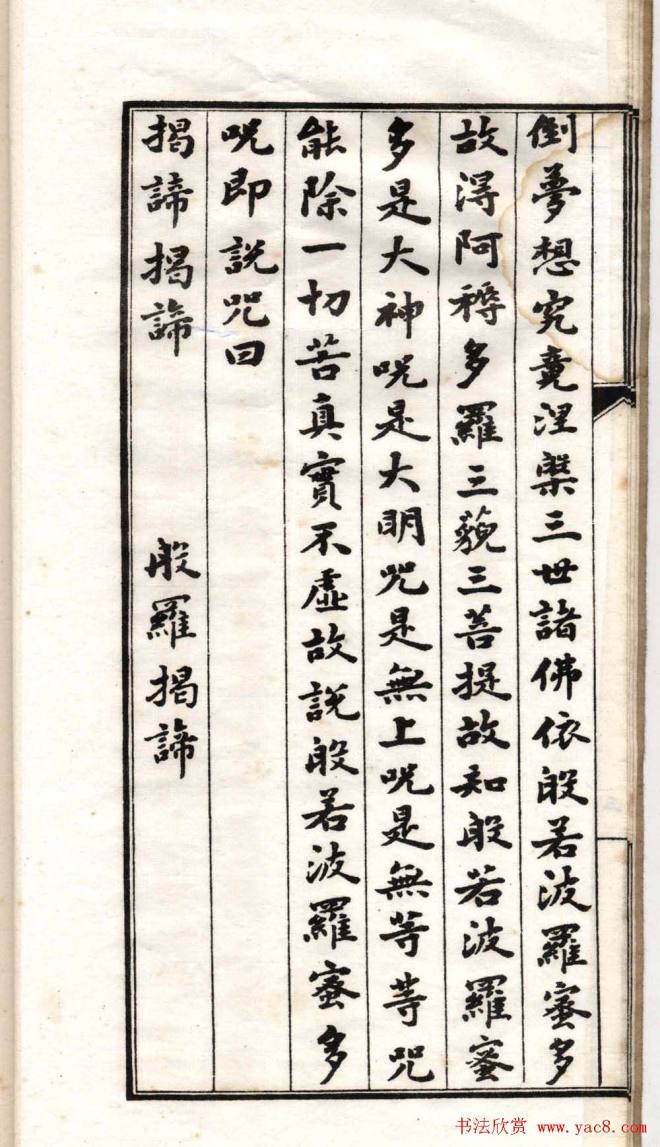 倒夢想究竟涅槃三世諸佛依般若波羅蜜多
故得阿耨多羅三藐三菩提故知般若波羅蜜
多是大神咒是大明咒是無上咒是無等等咒
能除一切苦真實不虛故說般若波羅蜜多
咒即說咒曰
揭諦揭諦 般羅揭諦
书法欣赏 www.yac8.com